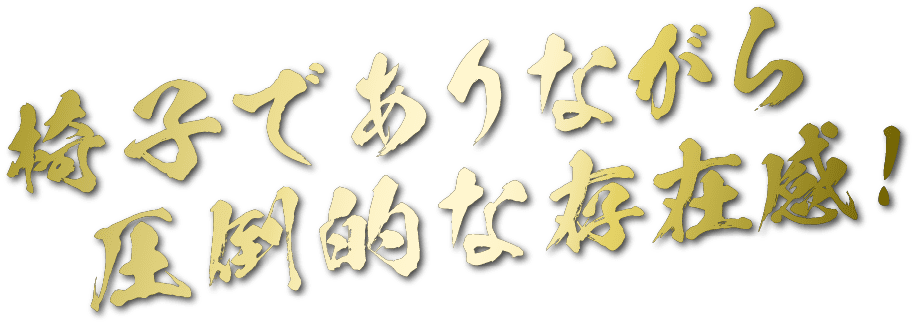 椅子でありながら
圧倒的な存在感！